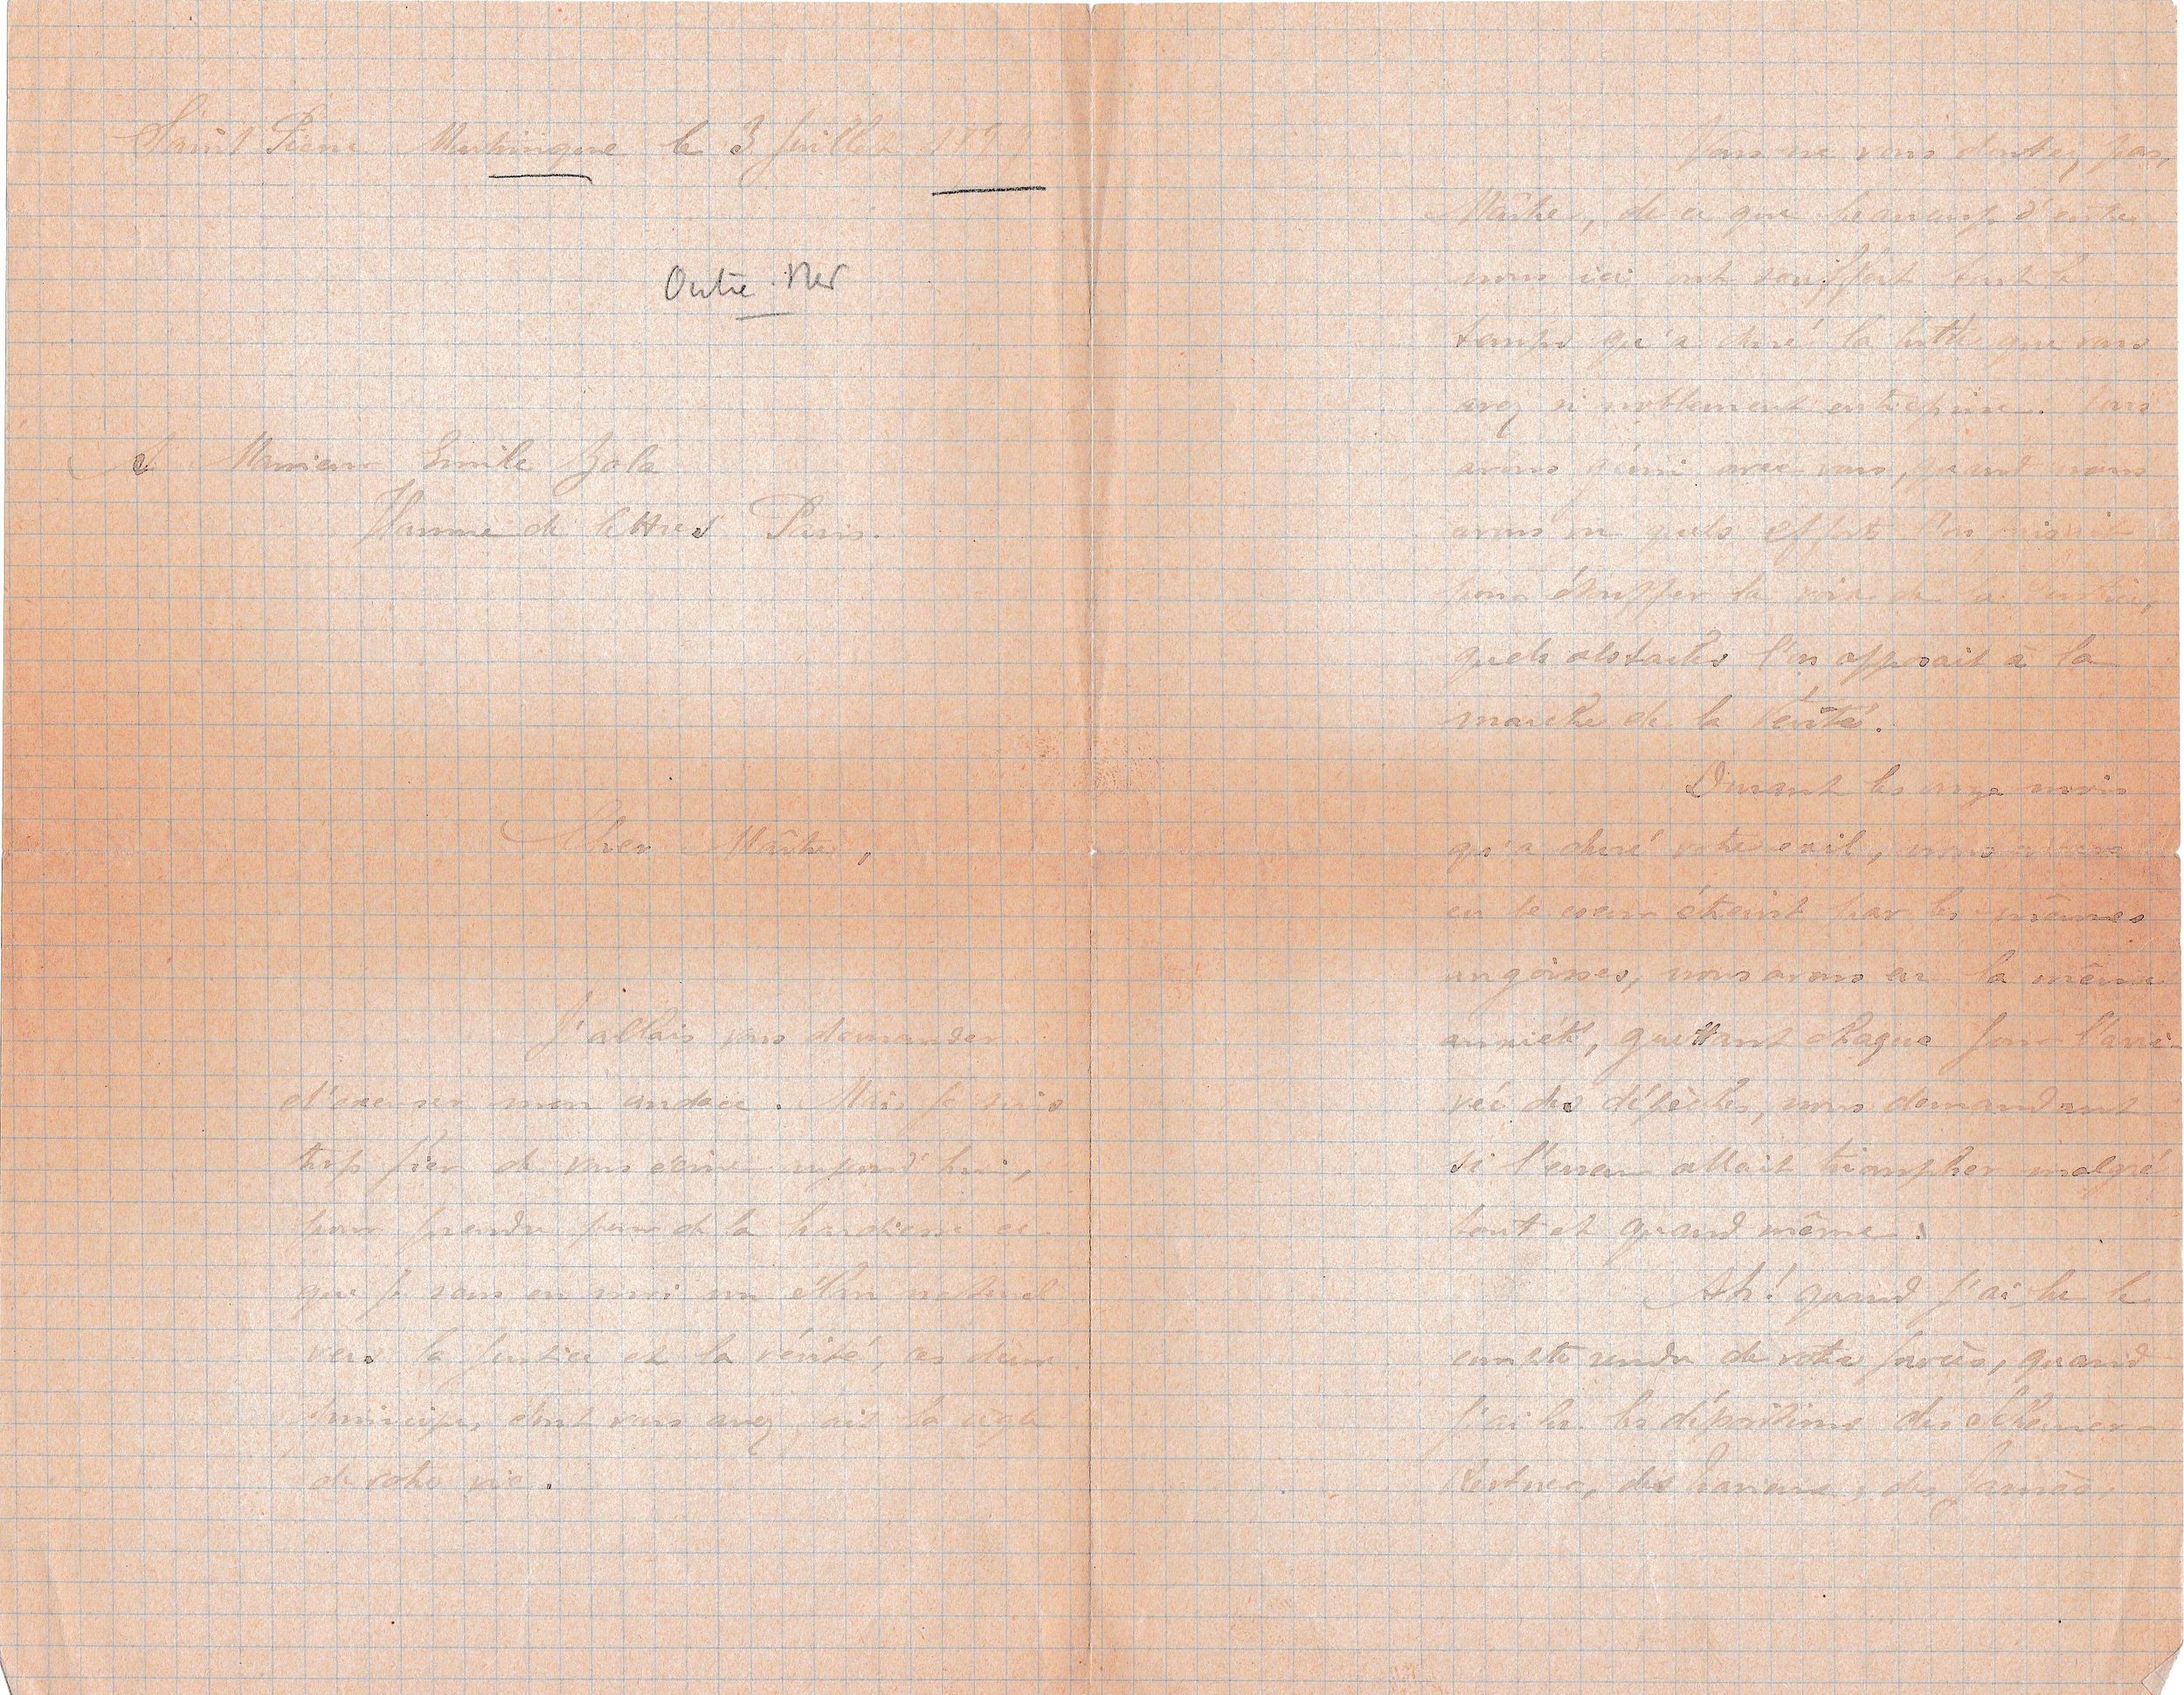 Saint Pierre Martinique le 3 Juillet 1899
Outre-Mer
A Monsieur Emile Zola
Homme de lettres Paris.
Cher Maître,
J'allais vous demander
d'excuser mon audace. Mais je suis
trop fier de vous écrire aujourd'hui,
pour prendre pour de la hardiesse ce
que je sens en moi un élan naturel
vers la justice et la vérité, ces deux
principes dont vous avez fait la règle
de votre vie.
Vous ne vous doutez pas,
Maître, de ce que beaucoup d'entre
nous ici ont souffert tout le
temps qu'a duré la lutte que vous
avez si noblement entreprise. Nous
avons gémi avec vous, quand nous
avons vu quels efforts l'on mettait
pour étouffer la voix de la Justice,
quels obstacles l'on opposait à la
marche de la Vérité.
Durant les onze mois
qu'a duré votre exil, nous avons
eu le cœur étreint par les mêmes
angoisses, nous avons eu la même
anxiété, guettant chaque jour l'arri-
vée des dépêches, nous demandant
si l'erreur allait triompher malgré
tout et quand même.
Ah! quand j'ai lu le
compte rendu de votre procès, quand
j'ai lu les dépositions des Scheurer-
Kestner, des Trarieux, des Jaurès,